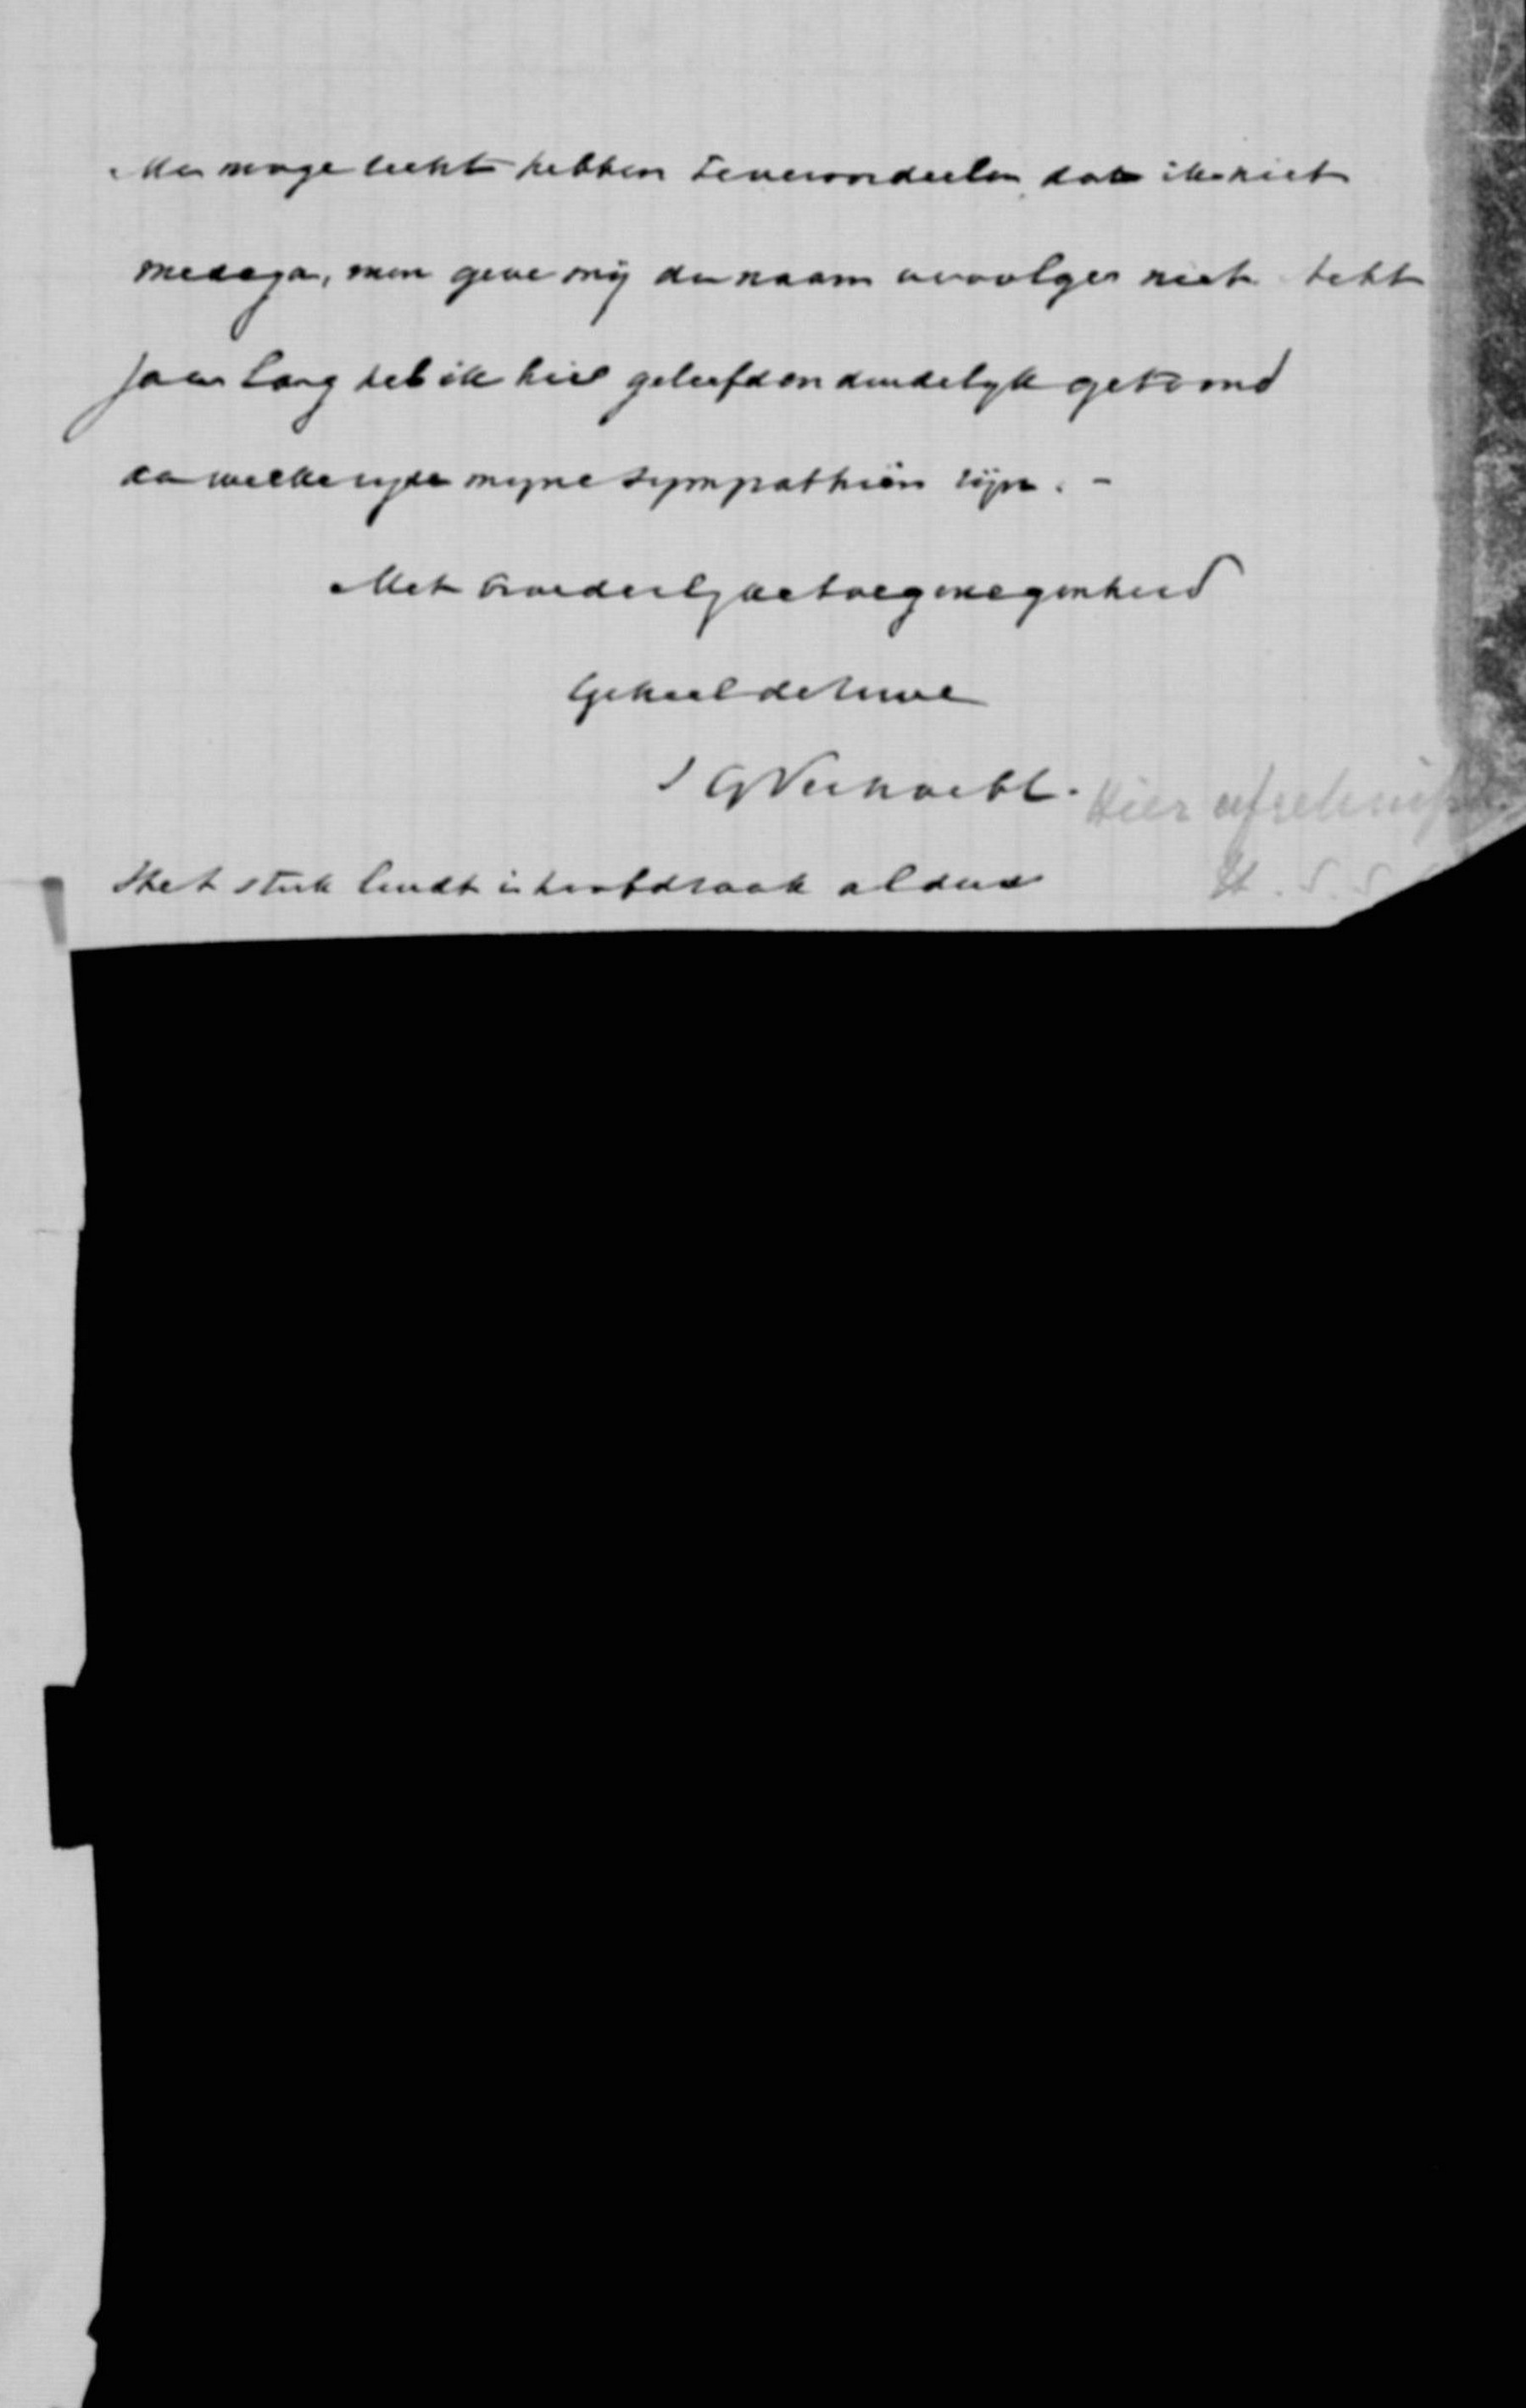 Men moge recht hebben te veroordeelen dat ik niet
medega, men geve mij den naam vervolger niet. Acht
jaar lang heb ik hier geleefd en duidelyk getoond
aan welke zyde myne sympathiën zijn. -
Met broederlyke toegenegenheid
Geheel de Uwe
J G Verhoeff.
Hier afschrift
Het stuk luidt in hoofdzaak aldus